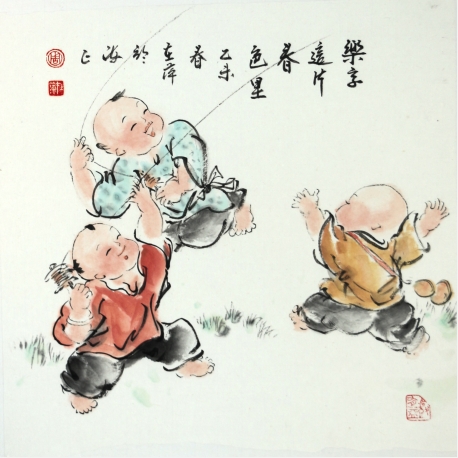 樂享
這片
春
色里
乙未
春
在萍
於
海